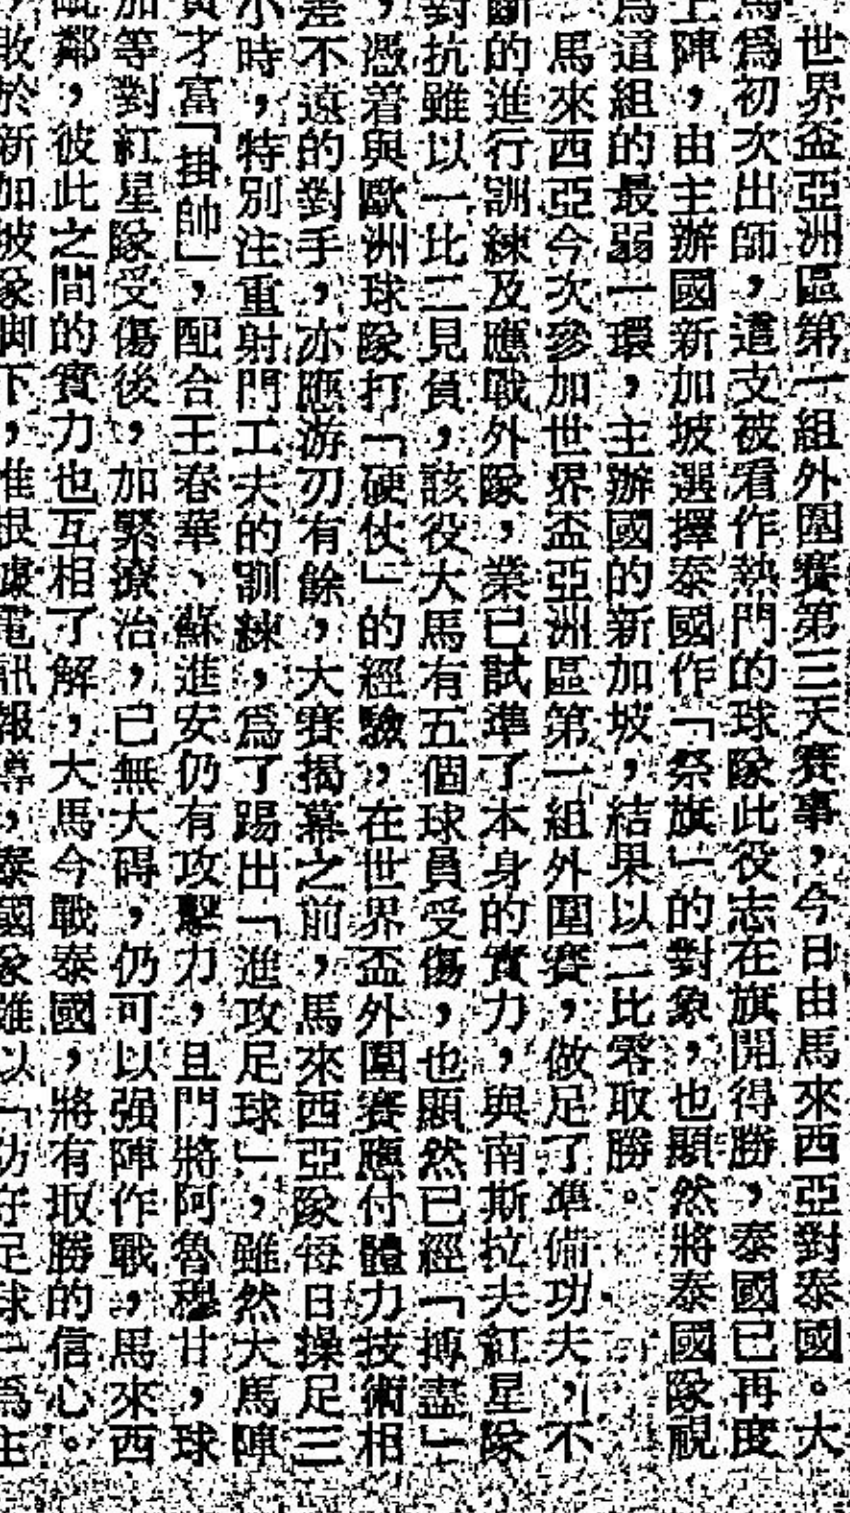 世界盃亞洲區第一組外圍賽第三天賽事，今日由馬來西亞對泰國。大
馬爲初次出師，這支被看作熱門的球隊此役志在旗開得勝，泰國已再度
上陣，由主辦國新加坡選擇泰國作「祭旗」的對象，也顯然將泰國隊視
爲這組的最弱一環，主辦國的新加坡，結果以二比零取勝。
馬來西亞今次參加世界盃亞洲區第一組外圍賽，做足了準備功夫，不
斷的進行訓練及應戰外隊，業已試準了本身的實力，與南斯拉夫紅星隊
對抗雖以一比二見負，該役大馬有五個球員受傷，也顯然已經「搏盡」
，憑着與歐洲球隊打「硬仗」的經驗，在世界盃外圍賽應付體力技術相
差不遠的對手，亦應游刃有餘，大賽揭幕之前，馬來西亞隊每日操足三
小時，特別注重射門工夫的訓練，爲了踢出「進攻足球」，雖然大馬陣
才富「掛帥」，配合王春華、蘇進安仍有攻擊力，且門將阿魯穆甘，球
加等對紅星隊受傷後，加緊療治，已無大碍，仍可以强陣作戰，馬來西
鄰，彼此之間的實力也互相了解，大馬今戰泰國，將有取勝的信心。
敗於新加坡隊脚下，惟根據電訊報導，泰國隊雖以「防守足球」爲主